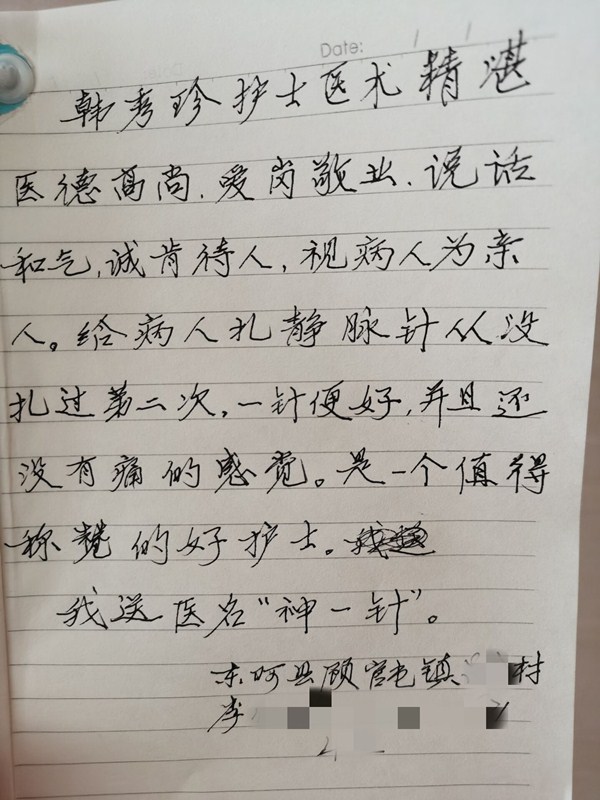 Date: / /
韩秀珍护士医术精湛
医德高尚.爱岗敬业.说话
和气,诚肯待人,视病人为亲
人。给病人扎静脉针从没
扎过第二次,一针便好,并且还
没有痛的感觉。是一个值得
称赞的好护士。
我送医名“神一针”。
东阿县顾官屯镇 村
李